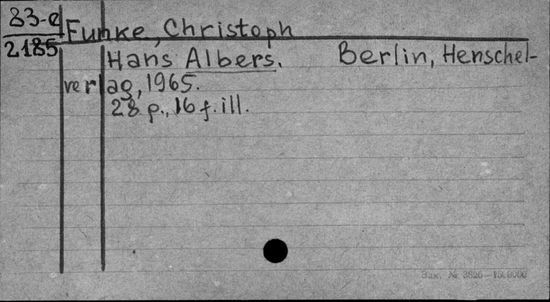 83-e
2185
Funke, Christoph
Hans Albers. Berlin, Henschel-
verlag, 1965.
28 p., 16 f. ill.
Зак. №